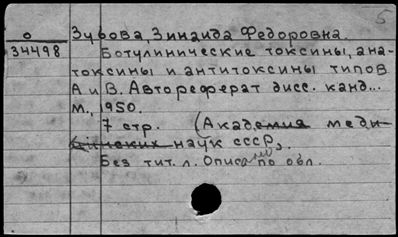 5
о Зубова, Зинаида Федоровна.
34498 Ботулинические токсины, ана-
токсины и антитоксины типов
А и В. Автореферат дисс. канд...
М., 1950.
7 стр. (Академия меди-
цинских наук СССР).
Без тит. л. Описано по обл.